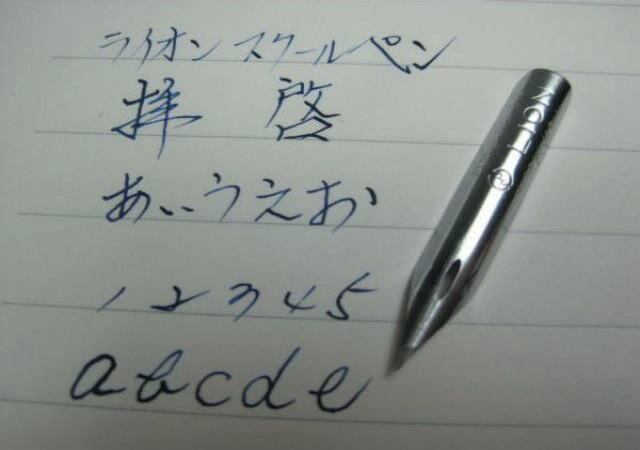 ライオン スクールペン
拝 啓
あいうえお
12345
abcde
LION